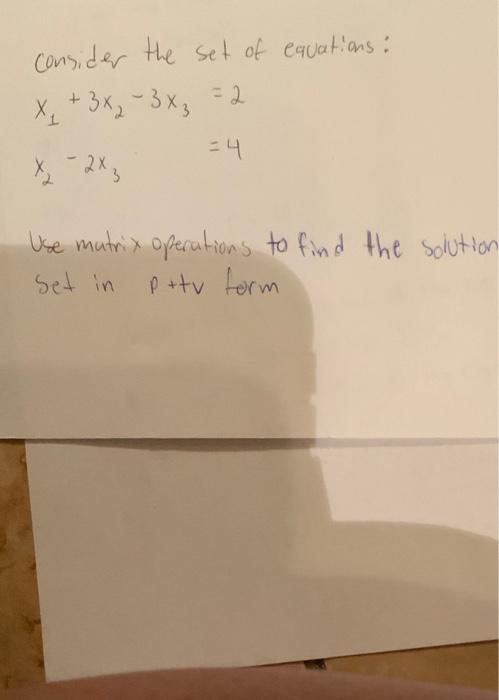 Consider the set of equations:
x₁ + 3x₂ - 3x₃ = 2
x₂ - 2x₃ = 4
Use matrix operations to find the solution
Set in p+tv form